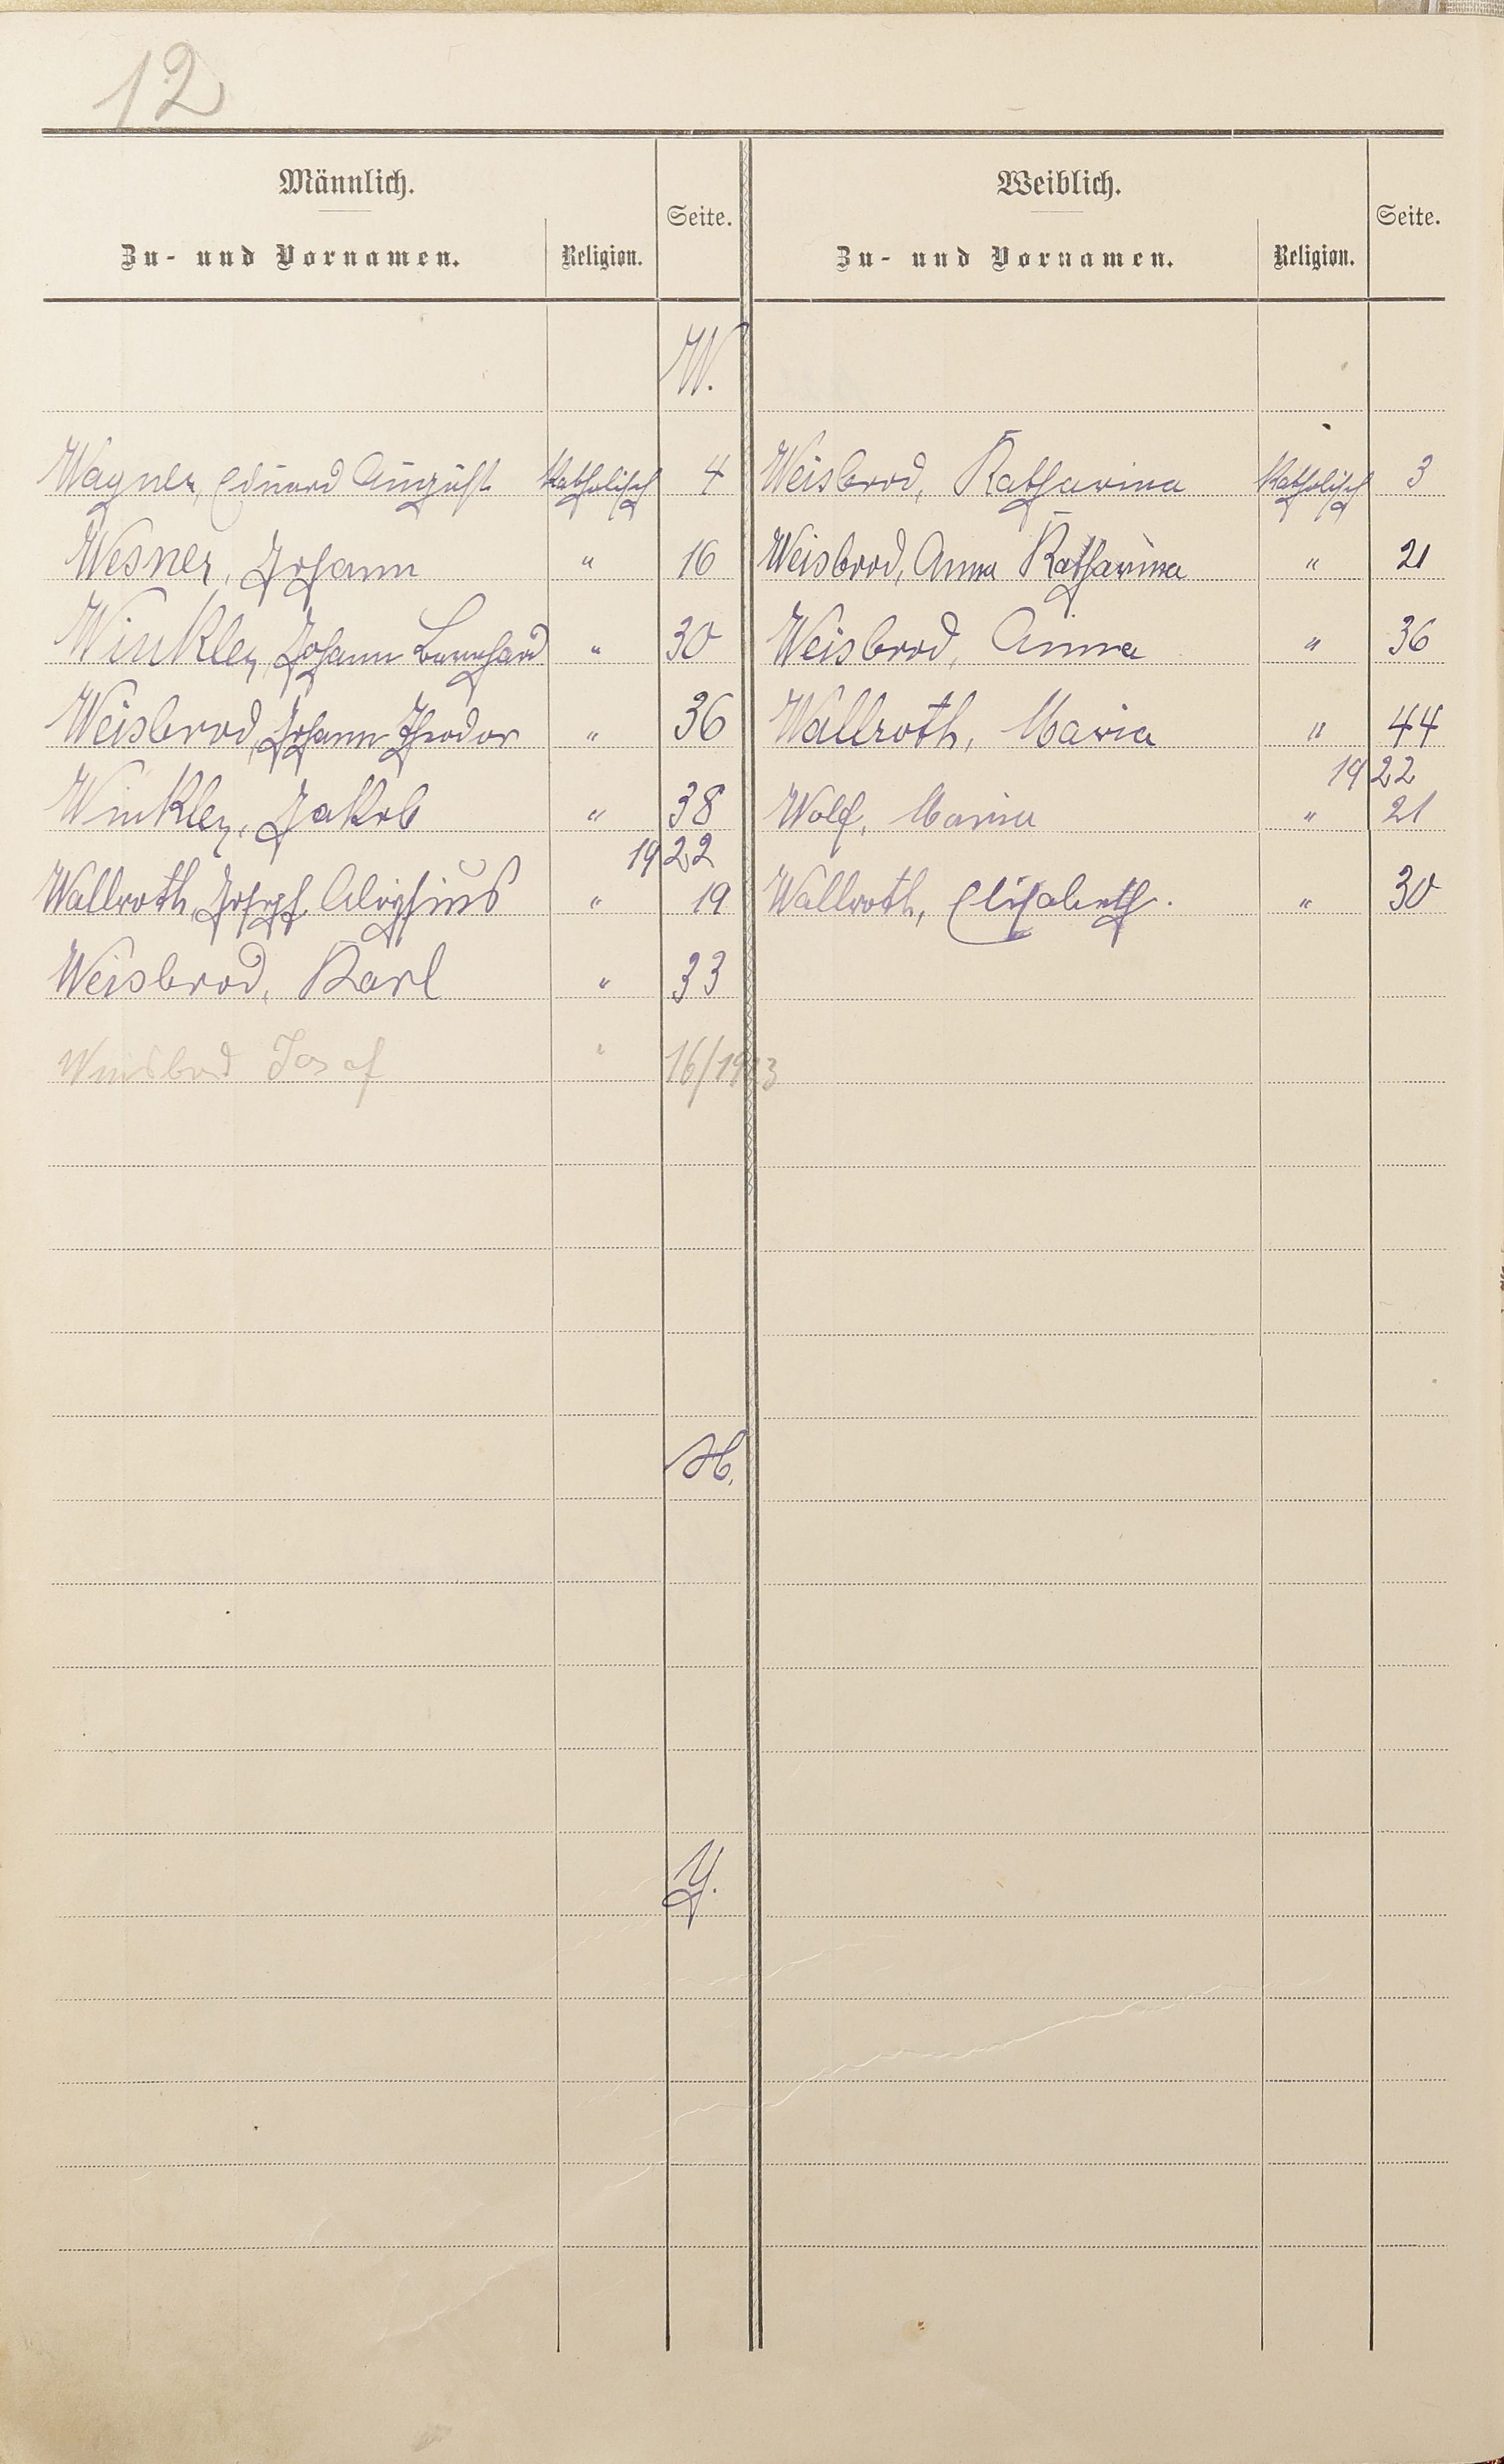 12
Männlich. Seite. Weiblich. Seite.
Zu- und Vornamen. Religion. Zu- und Vornamen. Religion.
W.
Wagner, Eduard August Katholisch 4 Weisbrod, Katharina Katholisch 3
Wesner, Johann " 16 Weisbrod, Anna Katharina " 21
Winkler, Johann Bernhard " 30 Weisbrod, Anna " 36
Weisbrod, Johann Theodor " 36 Wallroth, Maria " 44
1922
Winkler, Jakob " 38 Wolf, Maria " 21
1922
Wallroth, Joseph Aloysius " 19 Wallroth, Elisabeth. " 30
Weisbrod, Karl " 33
Josef " 16/1923
X.
Y.